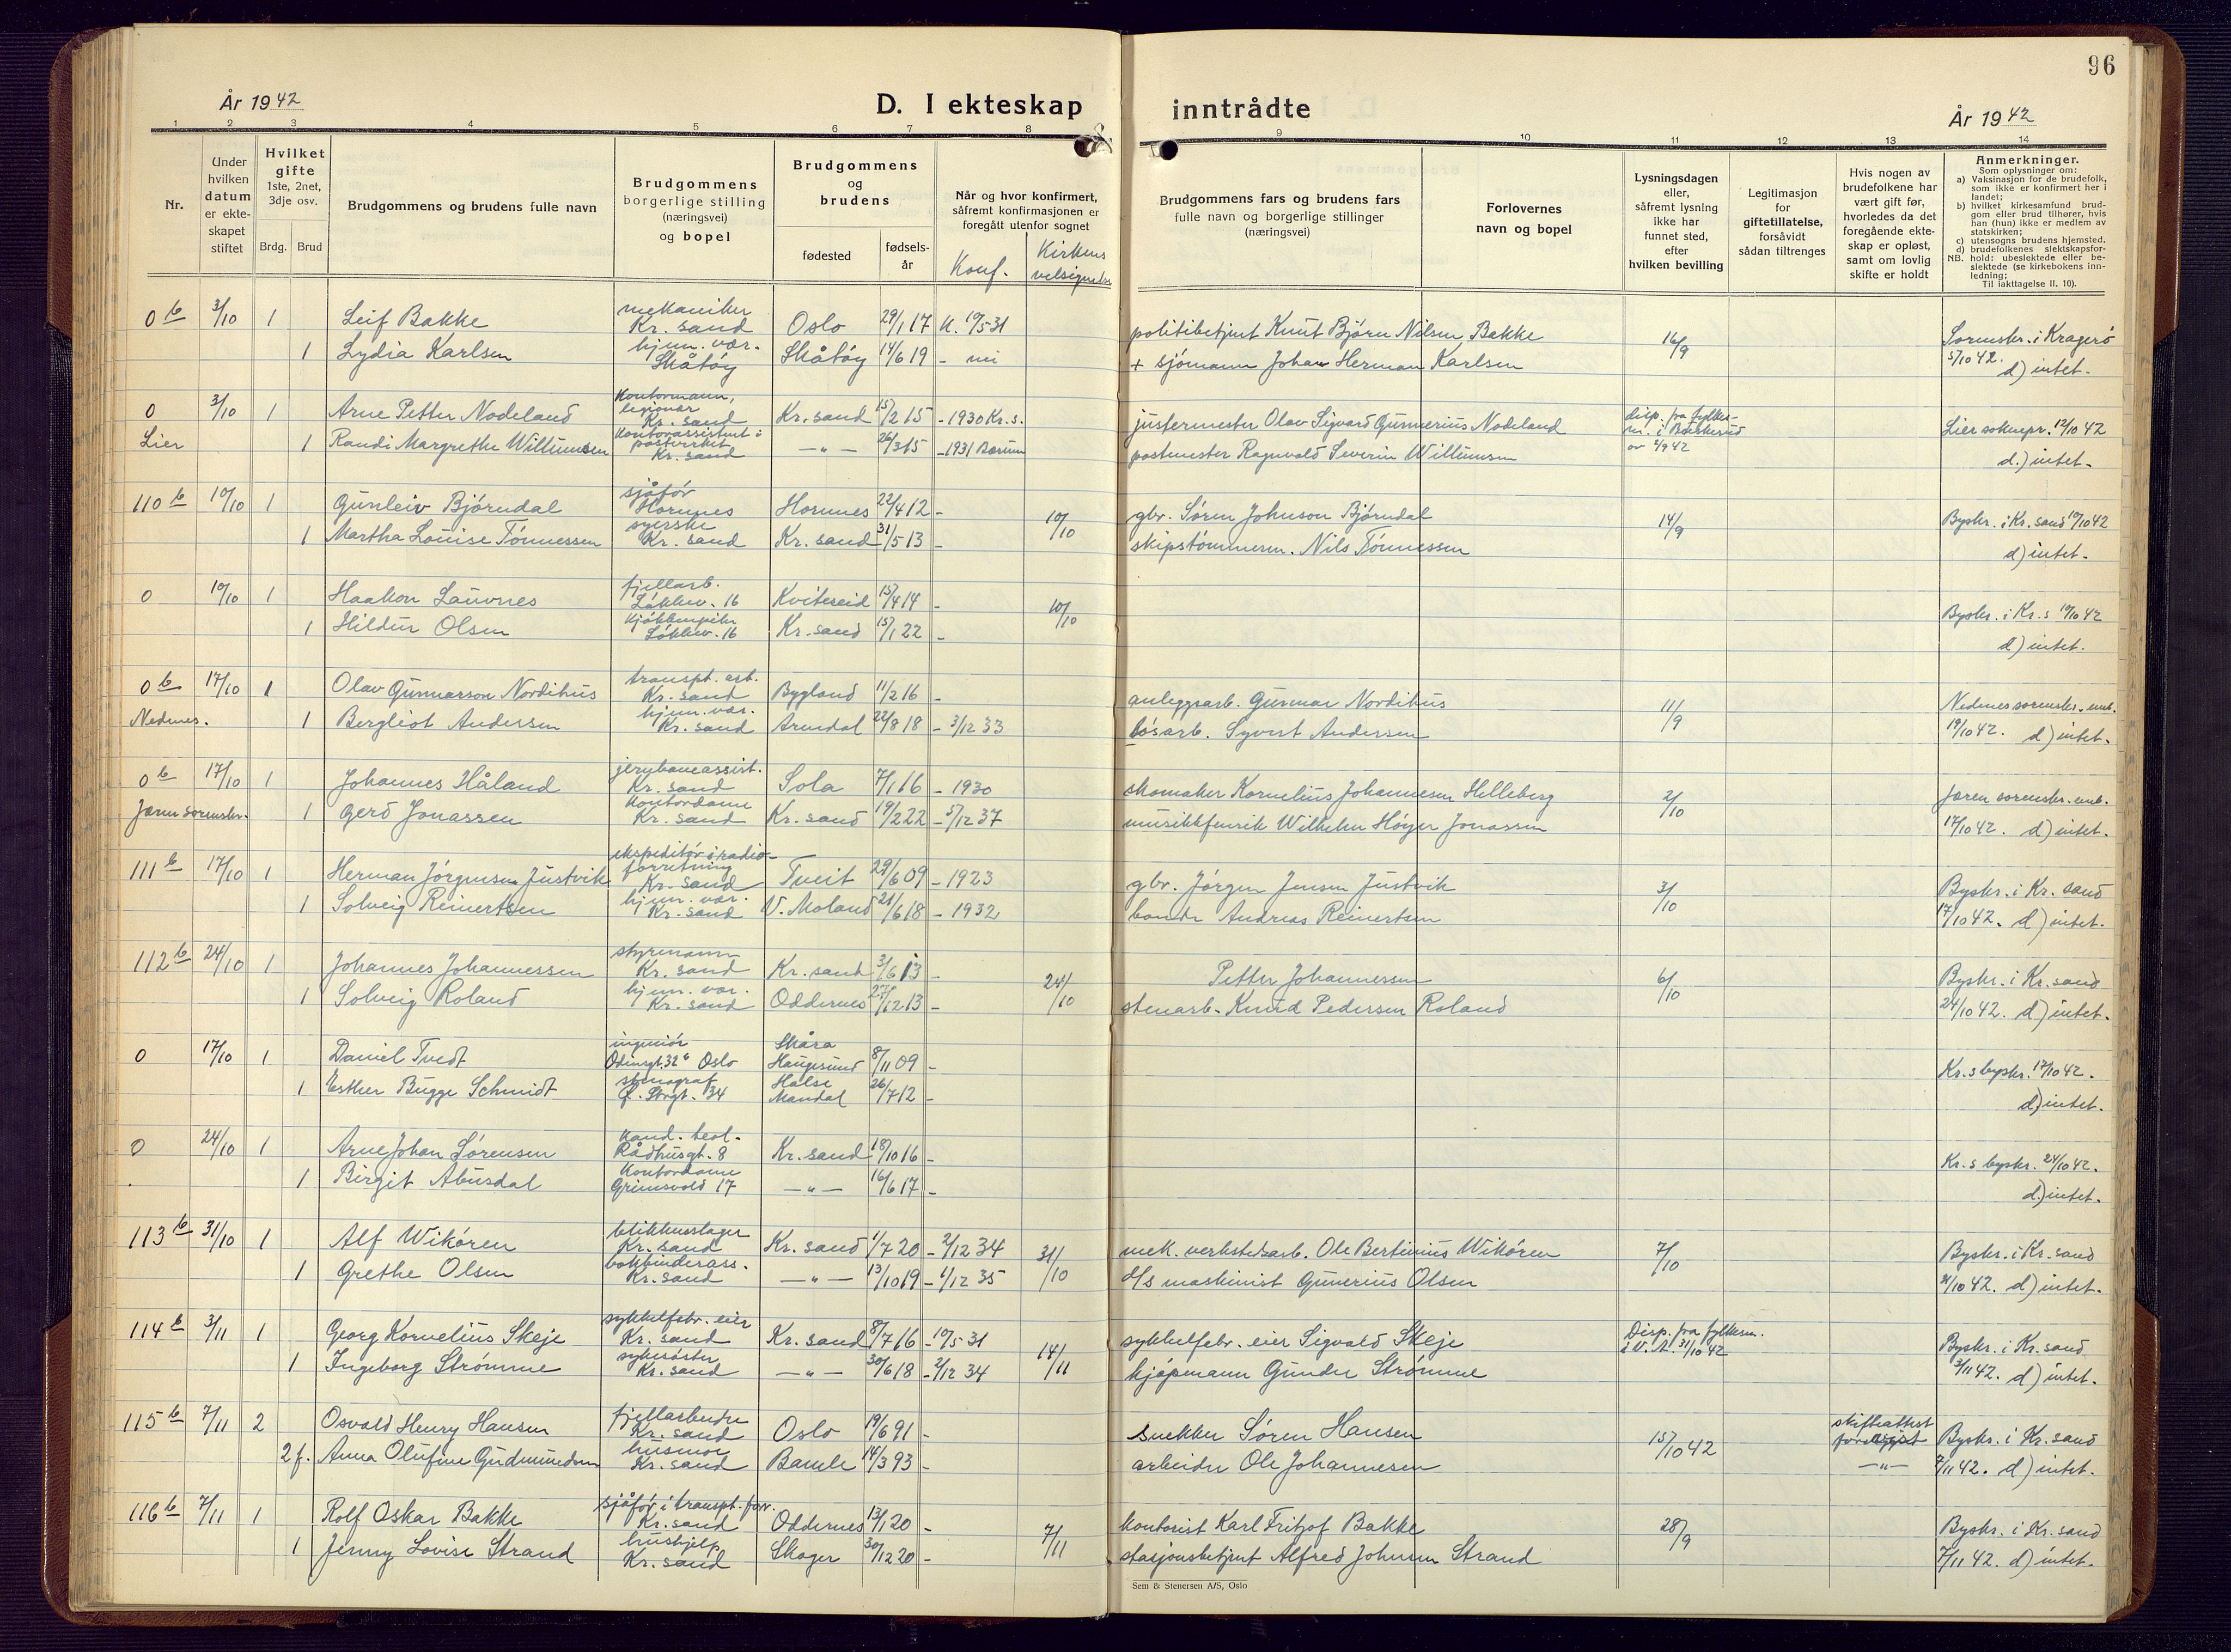 96
År 1942
D. I ekteskap inntrådte
År 1942
1 2 3 4 5 6 7 8 9 10 11 12 13 14
Nr.
Under hvilken datum er ekteskapet stiftet
Hvilket gifte 1ste, 2net, 3dje osv.
Brdg. Brud
Brudgommens og brudens fulle navn
Brudgommens borgerlige stilling (næringsvei) og bopel
Brudgommens og brudens
fødested
fødselsår
Når og hvor konfirmert, såfremt konfirmasjonen er foregått utenfor sognet
Konf. Kirkens velsignelse
Brudgommens fars og brudens fars fulle navn og borgerlige stillinger (næringsvei)
Forlovernes navn og bopel
Lysningsdagen eller, såfremt lysning ikke har funnet sted, efter hvilken bevilling
Legitimasjon for giftetillatelse, forsåvidt sådan tiltrenges
Hvis nogen av brudefolkene har vært gift før, hvorledes da det foregående ekteskap er opløst, samt om lovlig skifte er holdt
Anmerkninger.
Som oplysninger om:
a) Vaksinasjon for de brudefolk, som ikke er konfirmert her i landet;
b) hvilket kirkesamfund brudgom eller brud tilhører, hvis han (hun) ikke er medlem av statskirken;
c) utensogns brudens hjemsted.
d) brudefolkenes slektskapsforhold: ubeslektede eller beslektede (se kirkebokens innledning;
NB. Til iakttagelse II. 10).
0 b 3/10 1 Leif Bakke mekaniker Kr. sand Oslo 29/1 17 K. 10/5 31 politibetjent Knut Bjørn Nilsen Bakke 16/9 Sorenskr. i Kragerø
1 Lydia Karlsen hjem. vær. Skåtøy Skåtøy 14/6 19 - nei + sjömann Johan Herman Karlsen 5/10 42. d) intet.
0 3/10 1 Arne Petter Nodeland Kontormann, legionær Kr. sand Kr. sand 15/2 15 - 1930 Kr. s. justermester Olav Sigvard Gunnerius Nodeland disp. fra fylkesm. i Buskerud av 2/9 42 Lier soknepr. 12/10 42
Lier 1 Randi Margrethe Willumsen Kontorassistent i postverket Kr. sand -"- 26/3 15 - 1931 Bærum postmester Ragnvald Severin Willumsen d.) intet.
110 b 10/10 1 Gunleiv Bjørndal sjåfør Hornnes Hornnes 22/4 12 - 10/10 gbr. Søren Johnson Bjørndal 14/9 Byskr. i Kr. sand 10/10 42
1 Martha Louise Tönnessen syerske Kr. sand Kr. sand 31/5 13 - skipstömmerm. Nils Tönnessen d) intet.
0 10/10 1 Haakon Lauvnes fjellarb. Løkkev. 16 Kviteseid 15/4 14 - 10/10 Byskr. i Kr. s 10/10 42
1 Hildur Olsen Kjøkkenpike Løkkev. 16 Kr. sand 15/1 22 - d) intet.
0 b 17/10 1 Olav Gunnarson Nordihus transpt. arb. Kr. sand Bygland 11/2 16 - anleggsarb. Gunnar Nordihus 11/9 Nedenes sorenskr. emb.
Nedenes. 1 Bergliot Andersen hjem. vær. Kr. sand Arendal 22/8 18 - 3/12 33 løsarb. Syvert Andersen 19/10 42. d) intet.
0 b 17/10 1 Johannes Håland jernbaneassist. Kr. sand Sola 7/1 16 - 1930 skomaker Kornelius Johannesen Helleberg 2/10 Jæren sorenskr. emb.
Jæren sorenskr. 1 Gerd Jonassen Kontordame Kr. sand Kr. sand 19/2 22 - 5/12 37 musikkfenrik Wilhelm Høyer Jonassen 17/10 42. d) intet.
111 b 17/10 1 Herman Jörgensen Justvik ekspeditør i radioforretning Kr. sand Tveit 29/6 09 - 1923 gbr. Jörgen Jensen Justvik 3/10 Byskr. i Kr. sand
1 Solveig Reinertsen hjem. vær. Kr. sand V. Moland 21/6 18 - 1932 bonde Andreas Reinertsen 17/10 42. d) intet.
112 b 24/10 1 Johannes Johannessen styrmann Kr. sand Kr. sand 3/6 13 - 24/10 Petter Johannessen 6/10 Byskr. i Kr. sand
1 Solveig Roland hjem. vær. Kr. sand Oddernes 27/12 13 - stenarb. Knud Pedersen Roland 24/10 42. d) intet.
0 17/10 1 Daniel Tvedt ingeniør Odinsgt. 32 Oslo Skåra Haugesund 8/11 09 - Kr. s byskr. 17/10 42.
1 Esther Bugge Schmidt stenograf Ø. Strgt. 34 Halse Mandal 26/7 12 - d) intet.
0 24/10 1 Arne Johan Sørensen Kand. teol. Rådhusgt. 8 Kr. sand 18/10 16 - Kr. s byskr. 24/10 42.
1 Birgit Abusdal Kontordame Grimsvold 17 -"- 16/6 17 - d) intet.
113 b 31/10 1 Alf Wikøren blikkenslager Kr. sand Kr. sand 1/7 20 - 2/12 34 31/10 mek. verkstedsarb. Ole Bertinius Wikøren 7/10 Byskr. i Kr. sand
1 Grethe Olsen bokbinderass. Kr. sand -"- 13/10 19 - 1/12 35 d/s maskinist Gunerius Olsen 31/10 42. d) intet.
114 b 3/11 1 Georg Kornelius Skeje sykkelfabr. eier Kr. sand Kr. sand 8/7 16 - 10/5 31 14/11 sykkelfabr. eier Sigvald Skeje Disp. fra fylkesm. i V. A. 31/10 42 Byskr. i Kr. sand
1 Ingeborg Strömme sykesöster Kr. sand -"- 30/6 18 - 2/12 34 kjøpmann Gunder Strömme 3/11 42. d) intet.
115 b 7/11 2 Osvald Henry Hansen fjellarbeider Kr. sand Oslo 19/6 91 - snekker Sören Hansen 15/10 42 skifteattest forevist Byskr. i Kr. sand
2 f. Anna Olufine Gudmundsen husmor Kr. sand Bamle 14/3 93 - arbeider Ole Johannesen -"- 7/11 42. d) intet.
116 b 7/11 1 Rolf Oskar Bakke sjåfør i transpt. forr. Kr. sand Oddernes 13/1 20 - 7/11 kontorist Karl Fritjof Bakke 28/9 Byskr. i Kr. sand
1 Jenny Lovise Strand hushjelp Kr. sand Skoger 30/12 20 - stasjonsbetjent Alfred Johnsen Strand 7/11 42. d) intet.
Sem & Stenersen A/S, Oslo